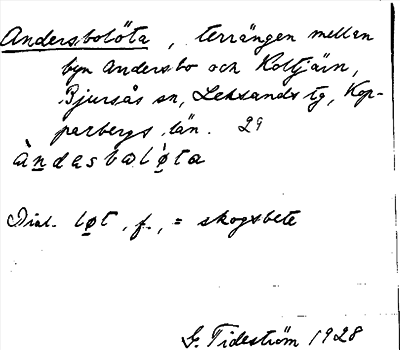 Andersbolöta, terrängen mellan
byn Andersbo och Koltjärn,
Bjursås sn, Leksands tg, Kop-
parbergs län. 29
àndasbaløta
Dial. løt, f., = skogsbete
G. Tideström 1928